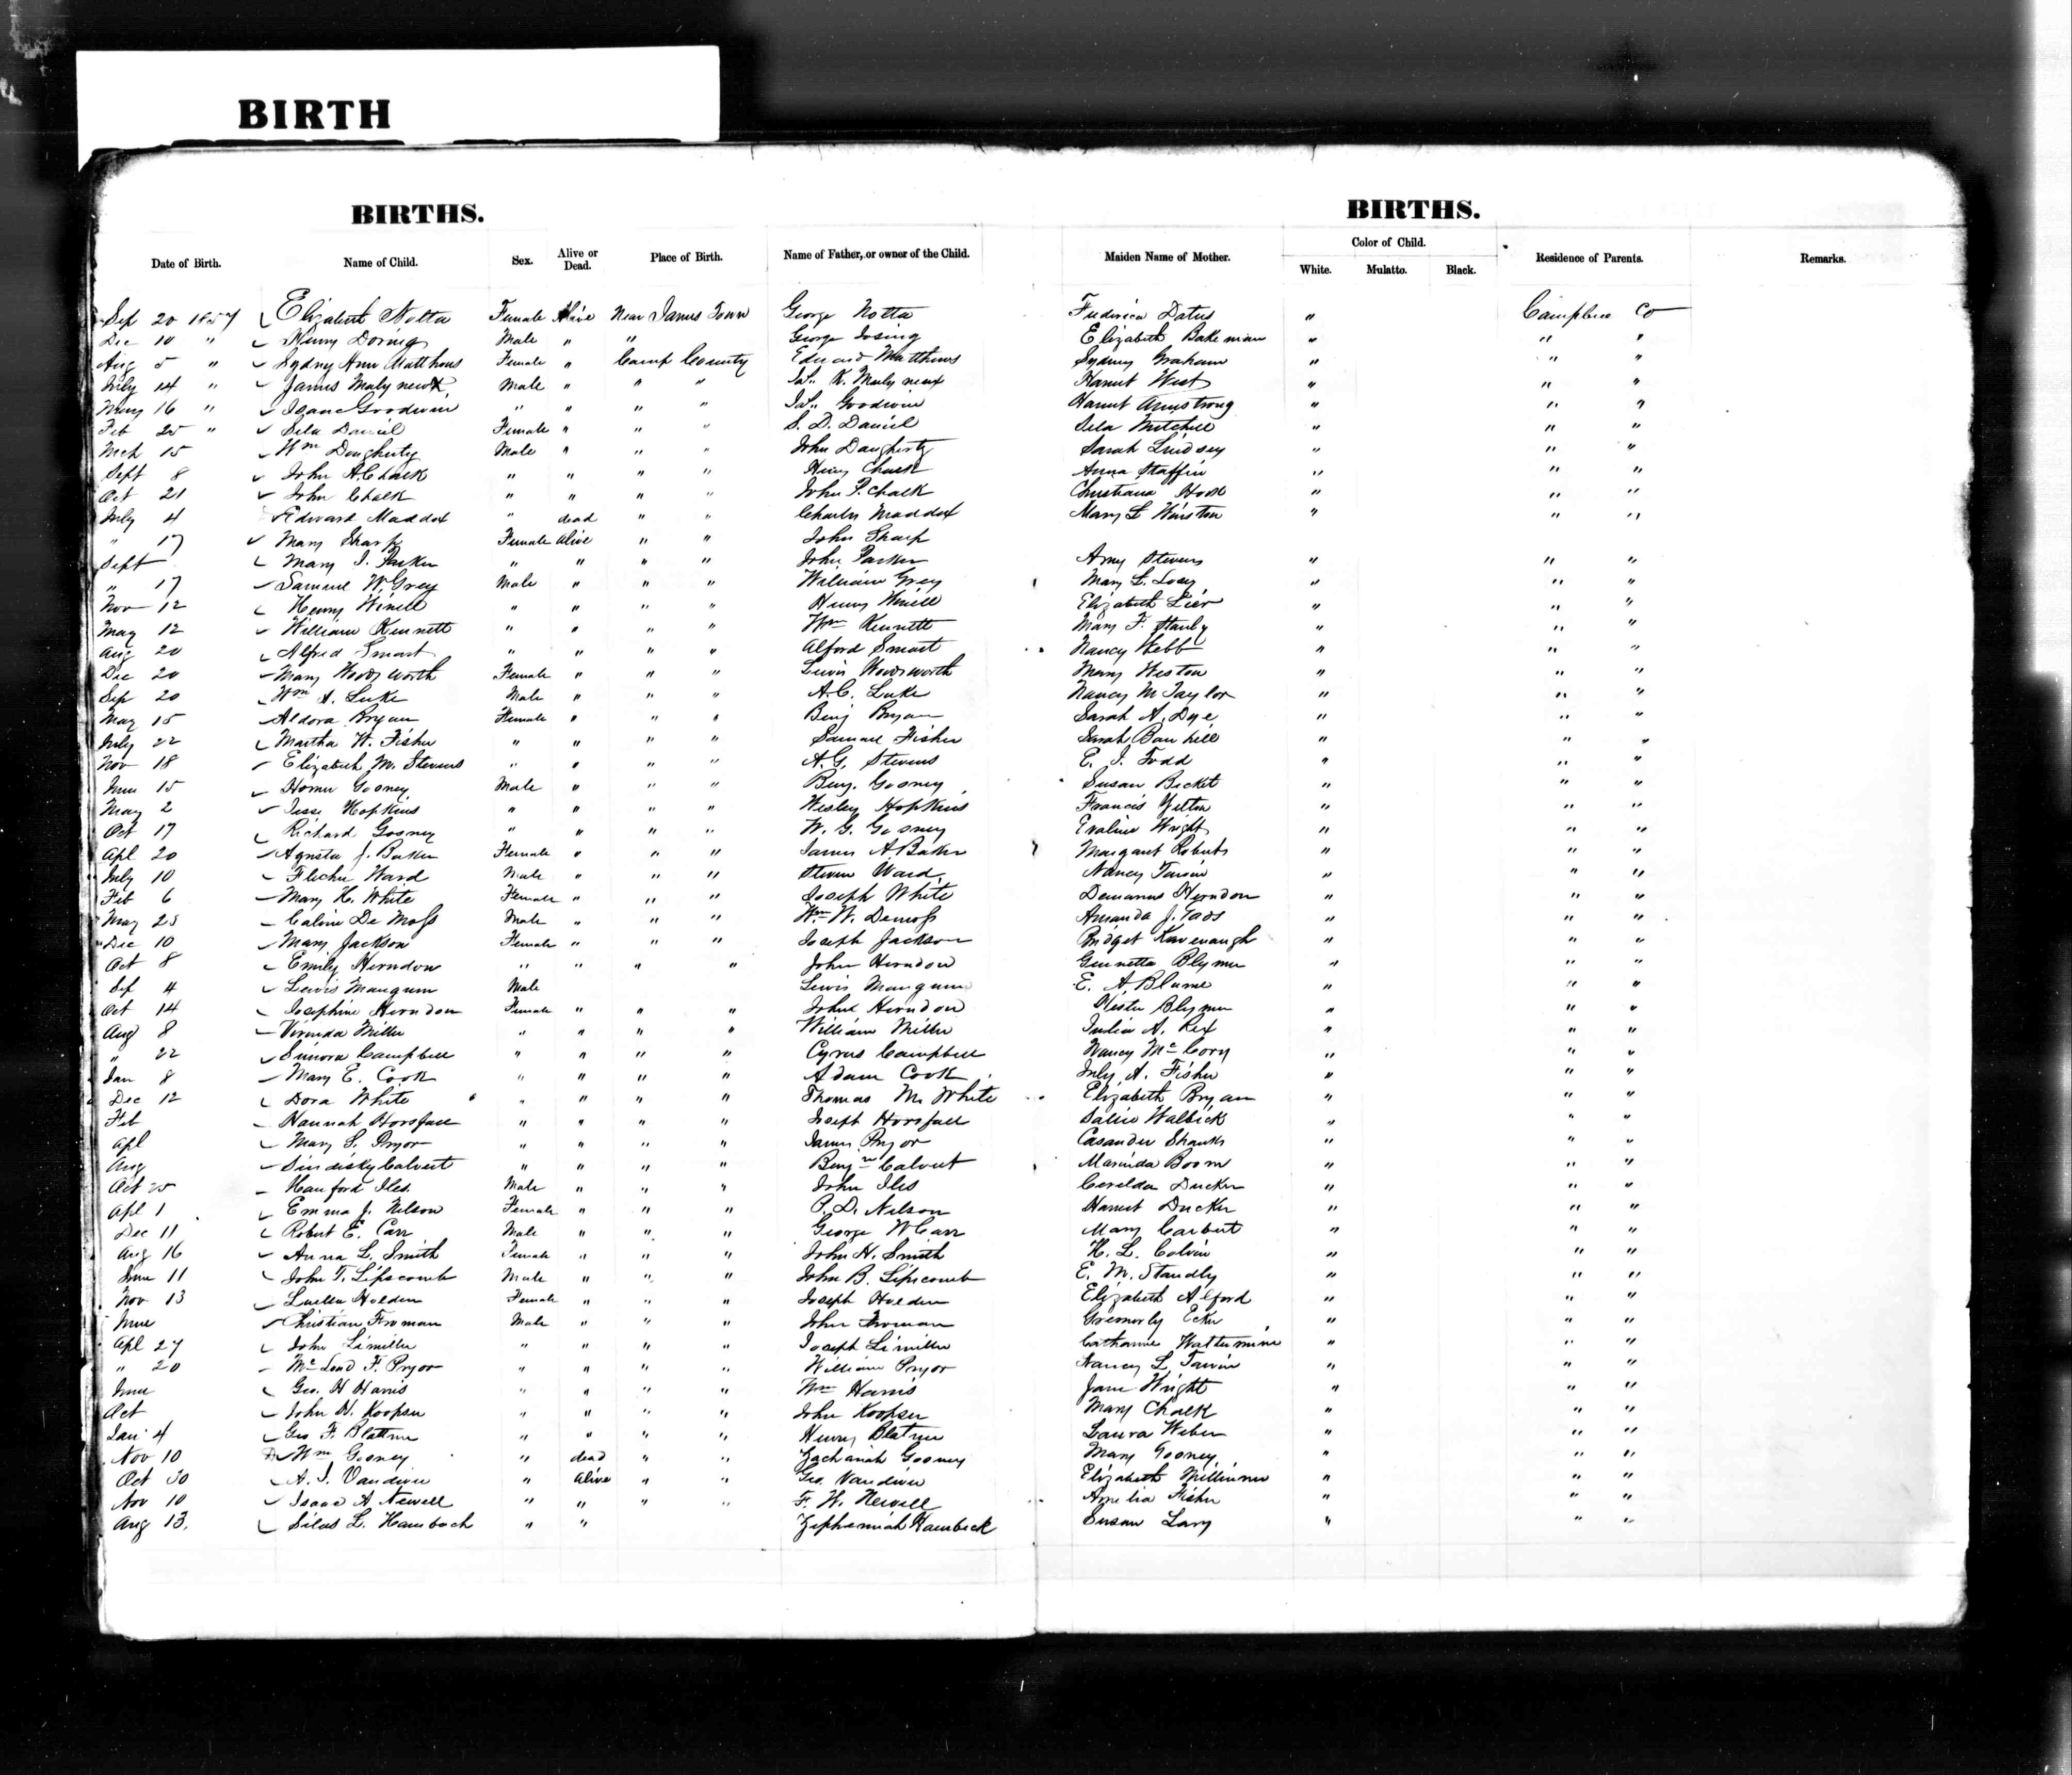 BIRTH
BIRTHS. BIRTHS.
Date of Birth. Name of Child. Sex. Alive or Dead. Place of Birth. Name of Father, or owner of the Child. Maiden Name of Mother. Color of Child. White. Mulatto. Black. Residence of Parents. Remarks.
Sep 20 1857 Elizabeth Notta Female Alive Near James Town George Notta Fredirica " Campbell Co
Dec 10 " Henry Male " " George Elizabeth Bakeman " " "
Aug 5 " Sydney Ann Matthews Female " Camp County Edward Matthews Sydney Graham " " "
July 14 " James Male " " " Jas. K. Harriet West " " "
May 16 " Isaac Goodwin " " " " Jas. Goodwin Harriet Armstrong " " "
Feb 25 " Sela Daniel Female " " " S. D. Daniel Sela Mitchell " " "
Mch 15 Wm Dougherty Male " " " John Daugherty Sarah Lindsey " " "
Sept 8 John A. Chalk " " " " Henry Chalk Anna Staffin " " "
Oct 21 John Chalk " " " " John P. Chalk Christiana Hook " " "
July 4 Edward Maddox " dead " " Charles Maddox Mary L Winston " " "
" 17 Mary Sharp Female Alive " " John Sharp
Sept Mary J. Parker " " " " John Parker Amy Stevens " " "
" 17 Samuel W. Grey Male " " " William Grey Mary L. " " "
Nov 12 Henry Winell " " " " Henry Winell Elizabeth Lier " " "
May 12 William Kennett " " " " Wm Kennett Mary F. Stanly " " "
Aug 20 Alfred Smart " " " " Alford Smart Nancy Webb " " "
Dec 20 Mary Woodsworth Female " " " Lewis Woodsworth Mary Weston " " "
Sep 20 Wm A. Luke Male " " " A. C. Luke Nancy M Taylor " " "
May 15 Aldora Bryan Female " " " Benj Bryan Sarah A. Dye " " "
July 22 Martha W. Fisher " " " " Samuel Fisher Sarah Barnhill " " "
Nov 18 Elizabeth M. Stevens " " " " A. G. Stevens E. J. Todd " " "
June 15 Homer Gosney Male " " " Benj. Gosney Susan Bicket " " "
May 2 Jesse Hopkins " " " " Wesley Hopkins Francis Yelton " " "
Oct 17 Richard Gosney " " " " W. G. Gosney Evaline Wright " " "
Apl 20 Agusta J. Baker Female " " " James A Baker Margaret Roberts " " "
July 10 Flecher Ward Male " " " Steven Ward Nancy Tarvin " " "
Feb 6 Mary H. White Female " " " Joseph White Demarius Herndon " " "
May 25 Calvin De Moss Male " " " Wm W. Demoss Amanda J. " " "
Dec 10 Mary Jackson Female " " " Joseph Jackson Bridget Kavenaugh " " "
Oct 8 Emily Herndon " " " " John Herndon Gennetta Blymer " " "
Sep 4 Lewis Mangum Male Lewis Mangum E. A. Blume " " "
Oct 14 Josephine Herndon Female " " " John Herndon Hester Blymer " " "
Aug 8 Virinda Miller " " " " William Miller Julia A. Rex " " "
" 22 Sinora Campbell " " " " Cyrus Campbell Nancy McCory " " "
Jan 8 Mary E. Cook " " " " Adam Cook July A. Fisher " " "
Dec 12 Dora White " " " " Thomas M. White Elizabeth Bryan " " "
Feb Hannah Horsfall " " " " Joseph Horsfall Sallie Walbick " " "
Apl Mary S. Pryor " " " " James Pryor Casander Shanks " " "
Aug Calvert " " " " Benjn Calvert Marinda Boom " " "
Oct 25 Hanford Iles Male " " " John Iles Cerelda Ducker " " "
Apl 1 Emma J. Nelson Female " " " P. D. Nelson Harriet Ducker " " "
Dec 11 Robert E. Carr Male " " " George W Carr Mary " " "
Aug 16 Anna L. Smith Female " " " John H. Smith H. L. Colvin " " "
June 11 John T. Lipscomb Male " " " John B. Lipscomb E. M. Standly " " "
Nov 13 Luella Holden Female " " " Joseph Holden Elizabeth Alford " " "
June Christian Froman Male " " " John Froman Ecker " " "
Apl 27 John Limiller " " " " Joseph Limiller Catharine " " "
" 20 McLoud F. Pryor " " " " William Pryor Nancy L. Tarvin " " "
June Geo. H Harris " " " " Wm Harris Jane Wright " " "
Oct John N. Koopser " " " " John Koopser Mary Chalk " " "
Jan 4 Geo F. Blattner " " " " Henry Blatner Laura Weber " " "
Nov 10 Wm Gosney " dead " " Zachariah Gosney Mary Gosney " " "
Oct 30 A. J. Vandiver " Alive " " Geo. Vandiver Elizabeth Millinner " " "
Nov 10 Isaac A Newell " " " " F. W. Newell Amelia Fisher " " "
Aug 13. Silas L. Hambach " " Zephemiah Hambeck Susan Lary " " "